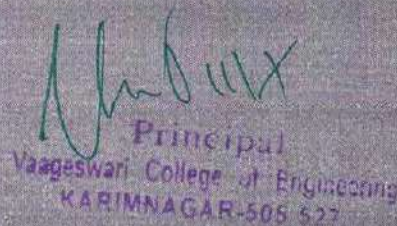 Principal
Vaageswari College of Engineering
KARIMNAGAR-505 527